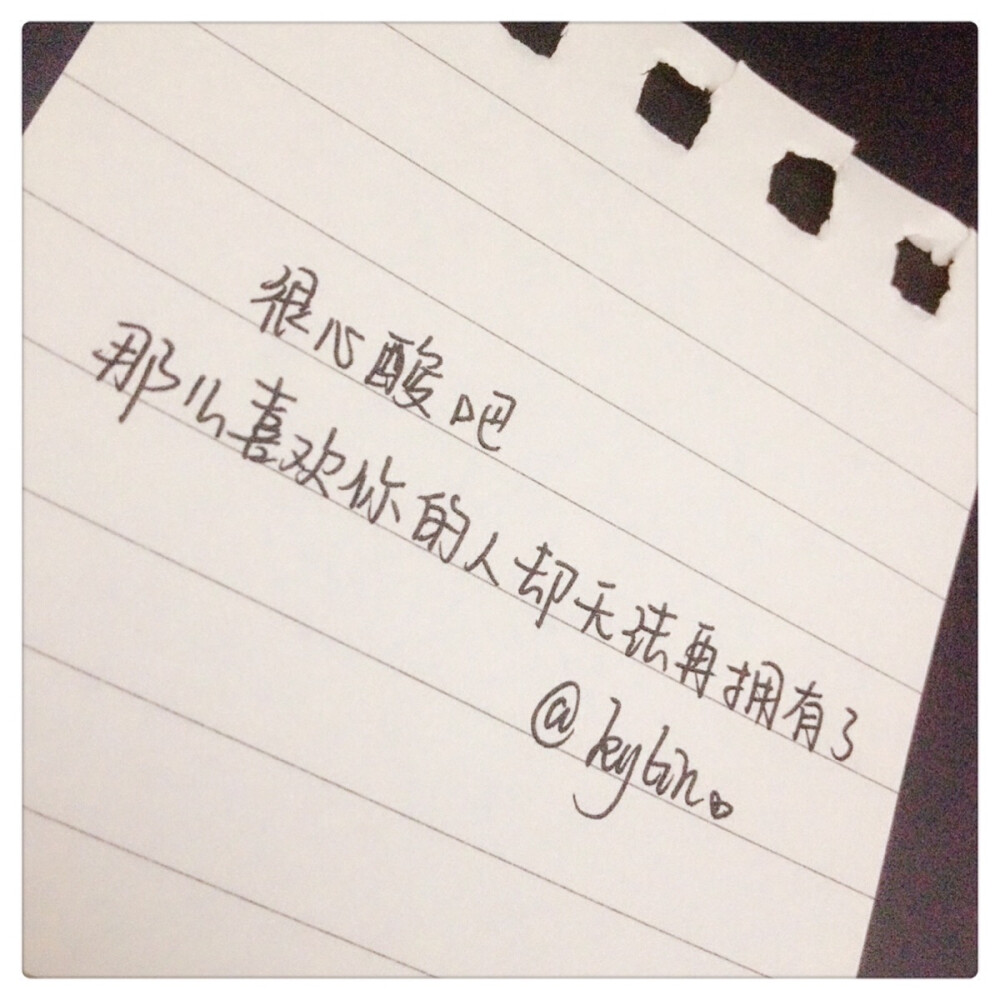 很心酸吧
那么喜欢你的人却无法再拥有了
@keybin。